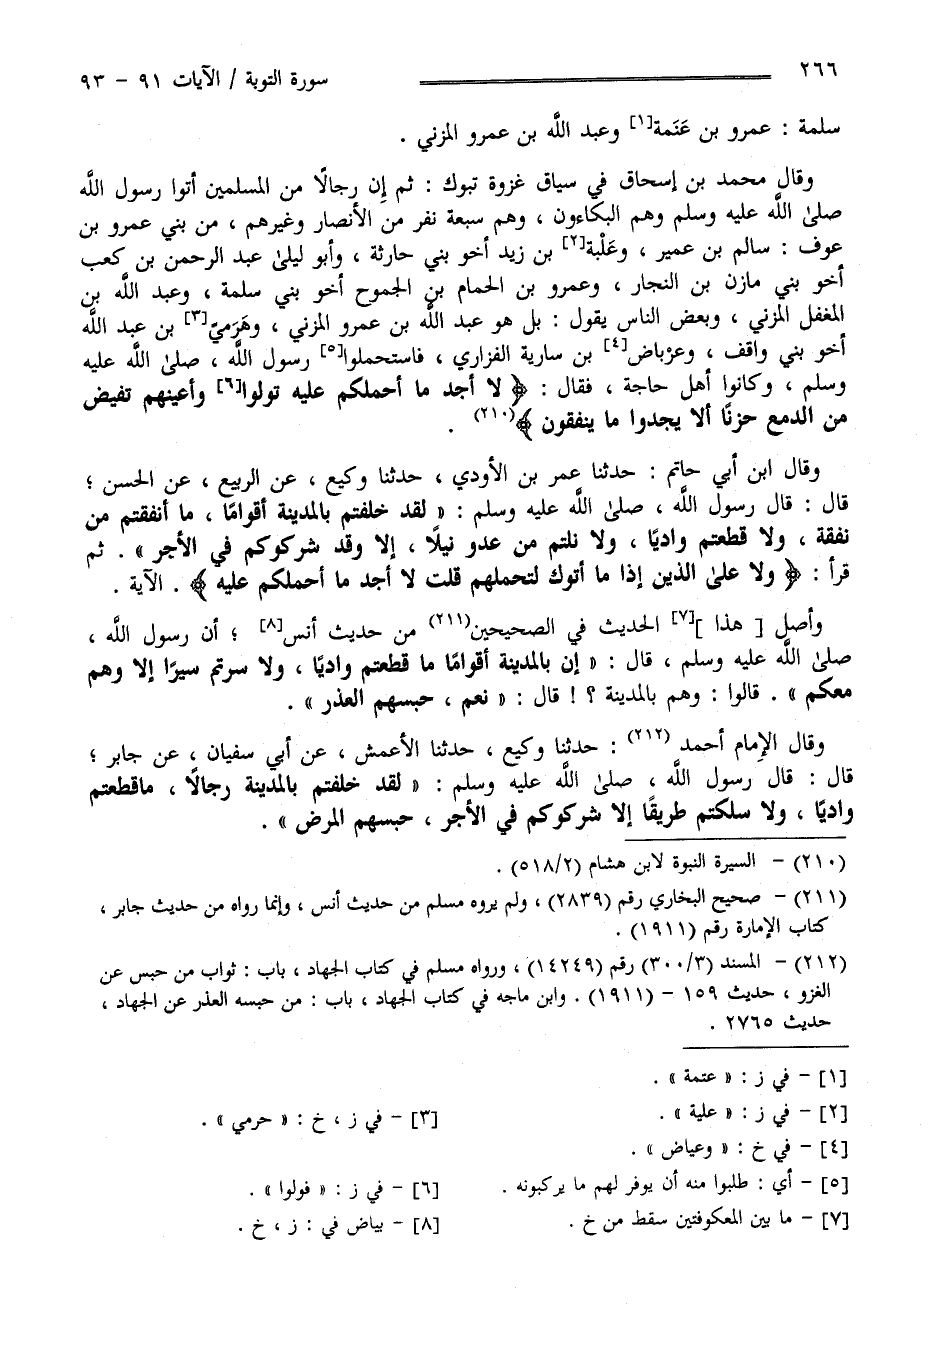 ٢٦٦ سورة التوبة / الآيات ٩١ – ٩٣
سلمة : عمرو بن عَنَمة[١] وعبد اللَّه بن عمرو المزني .
وقال محمد بن إسحاق في سياق غزوة تبوك : ثم إن رجالًا من المسلمين أتوا رسول اللَّه
صلىٰ اللَّه عليه وسلم وهم البكاءون ، وهم سبعة نفر من الأنصار وغيرهم ، من بني عمرو بن
عوف : سالم بن عمير ، وعَلْبة[٢] بن زيد أخو بني حارثة ، وأبو ليلىٰ عبد الرحمن بن كعب
أخو بني مازن بن النجار ، وعمرو بن الحمام بن الجموح أخو بني سلمة ، وعبد اللَّه بن
المغفل المزني ، وبعض الناس يقول : بل هو عبد اللَّه بن عمرو المزني ، وهَرَميّ[٣] بن عبد اللَّه
أخو بني واقف ، وعرْباض[٤] بن سارية الفزاري ، فاستحملوا[٥] رسول اللَّه ، صلىٰ اللَّه عليه
وسلم ، وكانوا أهل حاجة ، فقال : ﴿ لا أجد ما أحملكم عليه تولوا[٦] وأعينهم تفيض
من الدمع حزنًا ألا يجدوا ما ينفقون ﴾(٢١٠) .
وقال ابن أبي حاتم : حدثنا عمر بن الأودي ، حدثنا وكيع ، عن الربيع ، عن الحسن ؛
قال : قال رسول اللَّه ، صلىٰ اللَّه عليه وسلم : « لقد خلفتم بالمدينة أقوامًا ، ما أنفقتم من
نفقة ، ولا قطعتم واديًا ، ولا نلتم من عدو نيلًا ، إلا وقد شركوكم في الأجر » . ثم
قرأ : ﴿ ولا علىٰ الذين إذا ما أتوك لتحملهم قلت لا أجد ما أحملكم عليه ﴾ . الآية .
وأصل [ هذا ][٧] الحديث في الصحيحين(٢١١) من حديث أنس[٨] ؛ أن رسول اللَّه ،
صلىٰ اللَّه عليه وسلم ، قال : « إن بالمدينة أقوامًا ما قطعتم واديًا ، ولا سرتم سيرًا إلا وهم
معكم » . قالوا : وهم بالمدينة ؟ ! قال : « نعم ، حبسهم العذر » .
وقال الإمام أحمد (٢١٢) : حدثنا وكيع ، حدثنا الأعمش ، عن أبي سفيان ، عن جابر ؛
قال : قال رسول اللَّه ، صلىٰ اللَّه عليه وسلم : « لقد خلفتم بالمدينة رجالًا ، ماقطعتم
واديًا ، ولا سلكتم طريقًا إلا شركوكم في الأجر ، حبسهم المرض » .
(٢١٠) – السيرة النبوة لابن هشام (٥١٨/٢) .
(٢١١) – صحيح البخاري رقم (٢٨٣٩) ، ولم يروه مسلم من حديث أنس ، وإنما رواه من حديث جابر ،
كتاب الإمارة رقم (١٩١١) .
(٢١٢) – المسند (٣٠٠/٣) رقم (١٤٢٤٩) ، ورواه مسلم في كتاب الجهاد ، باب : ثواب من حبس عن
الغزو ، حديث ١٥٩ – (١٩١١) . وابن ماجه في كتاب الجهاد ، باب : من حبسه العذر عن الجهاد ،
حديث ٢٧٦٥ .
[١] – في ز : « عتمة » .
[٢] – في ز : « علية » . [٣] – في ز ، خ : « حرمي » .
[٤] – في خ : « وعياض » .
[٥] – أي : طلبوا منه أن يوفر لهم ما يركبونه . [٦] – في ز : « فولوا » .
[٧] – ما بين المعكوفتين سقط من خ . [٨] – بياض في : ز ، خ .